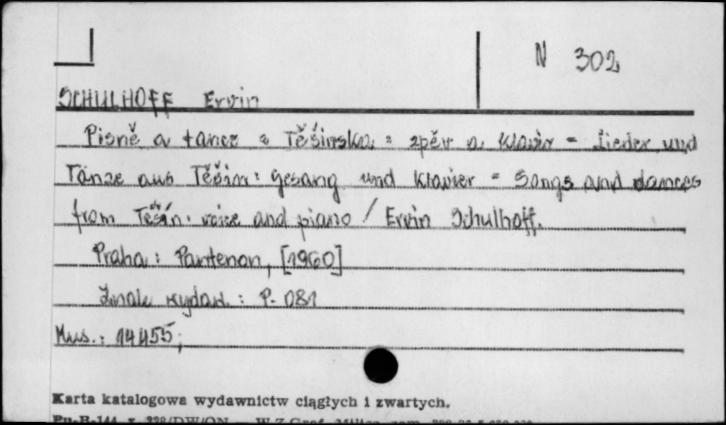 N 302
SCHULHOFF Ervin
Pisně a tance z Těšinska : zpěv a klavír = Lieder und
Tänze aus Těšín : Gesang und Klavier = Songs and dances
from Těšín : voice and piano / Ervin Schulhoff.
Praha : Panteon, [1960]
Znak wydaw. : P. 081
Mus. : 14455,
Karta katalogowa wydawnictw ciągłych i zwartych.
Pu-B-144